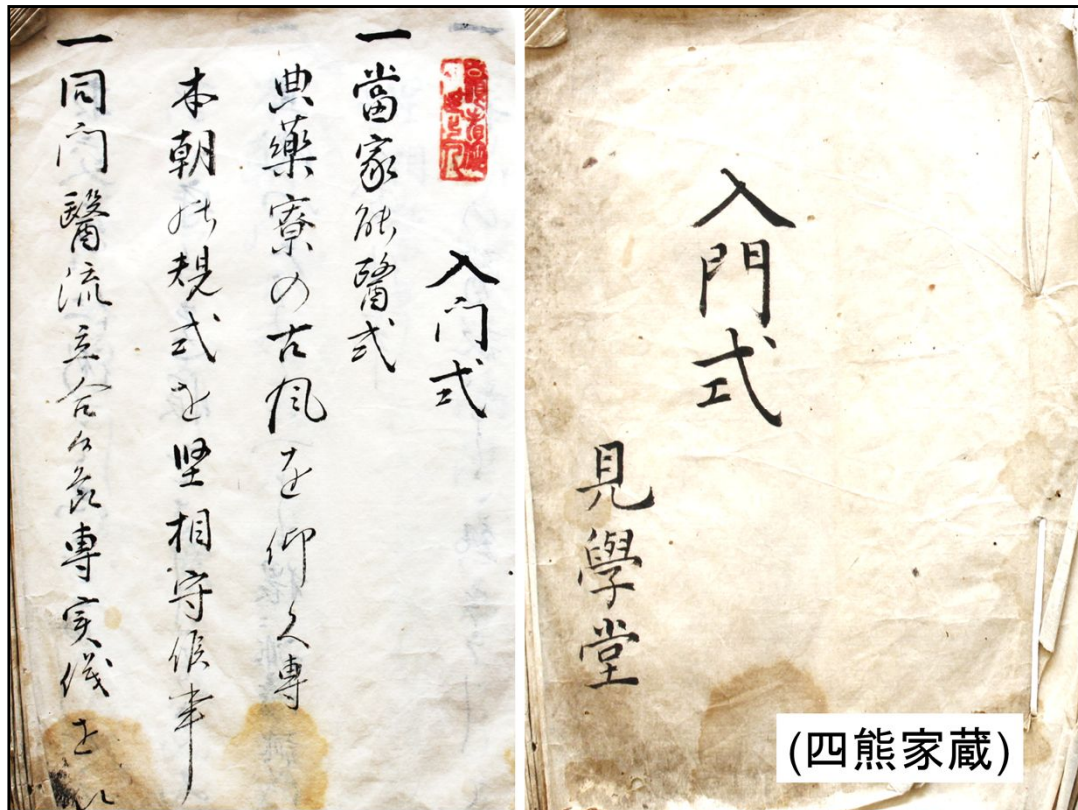 入門式
見學堂
(四熊家蔵)
入门式
一當家能醫式
典藥寮の古風を仰専
本朝能規式を堅相守候事
一同门醫流立合専実儀を